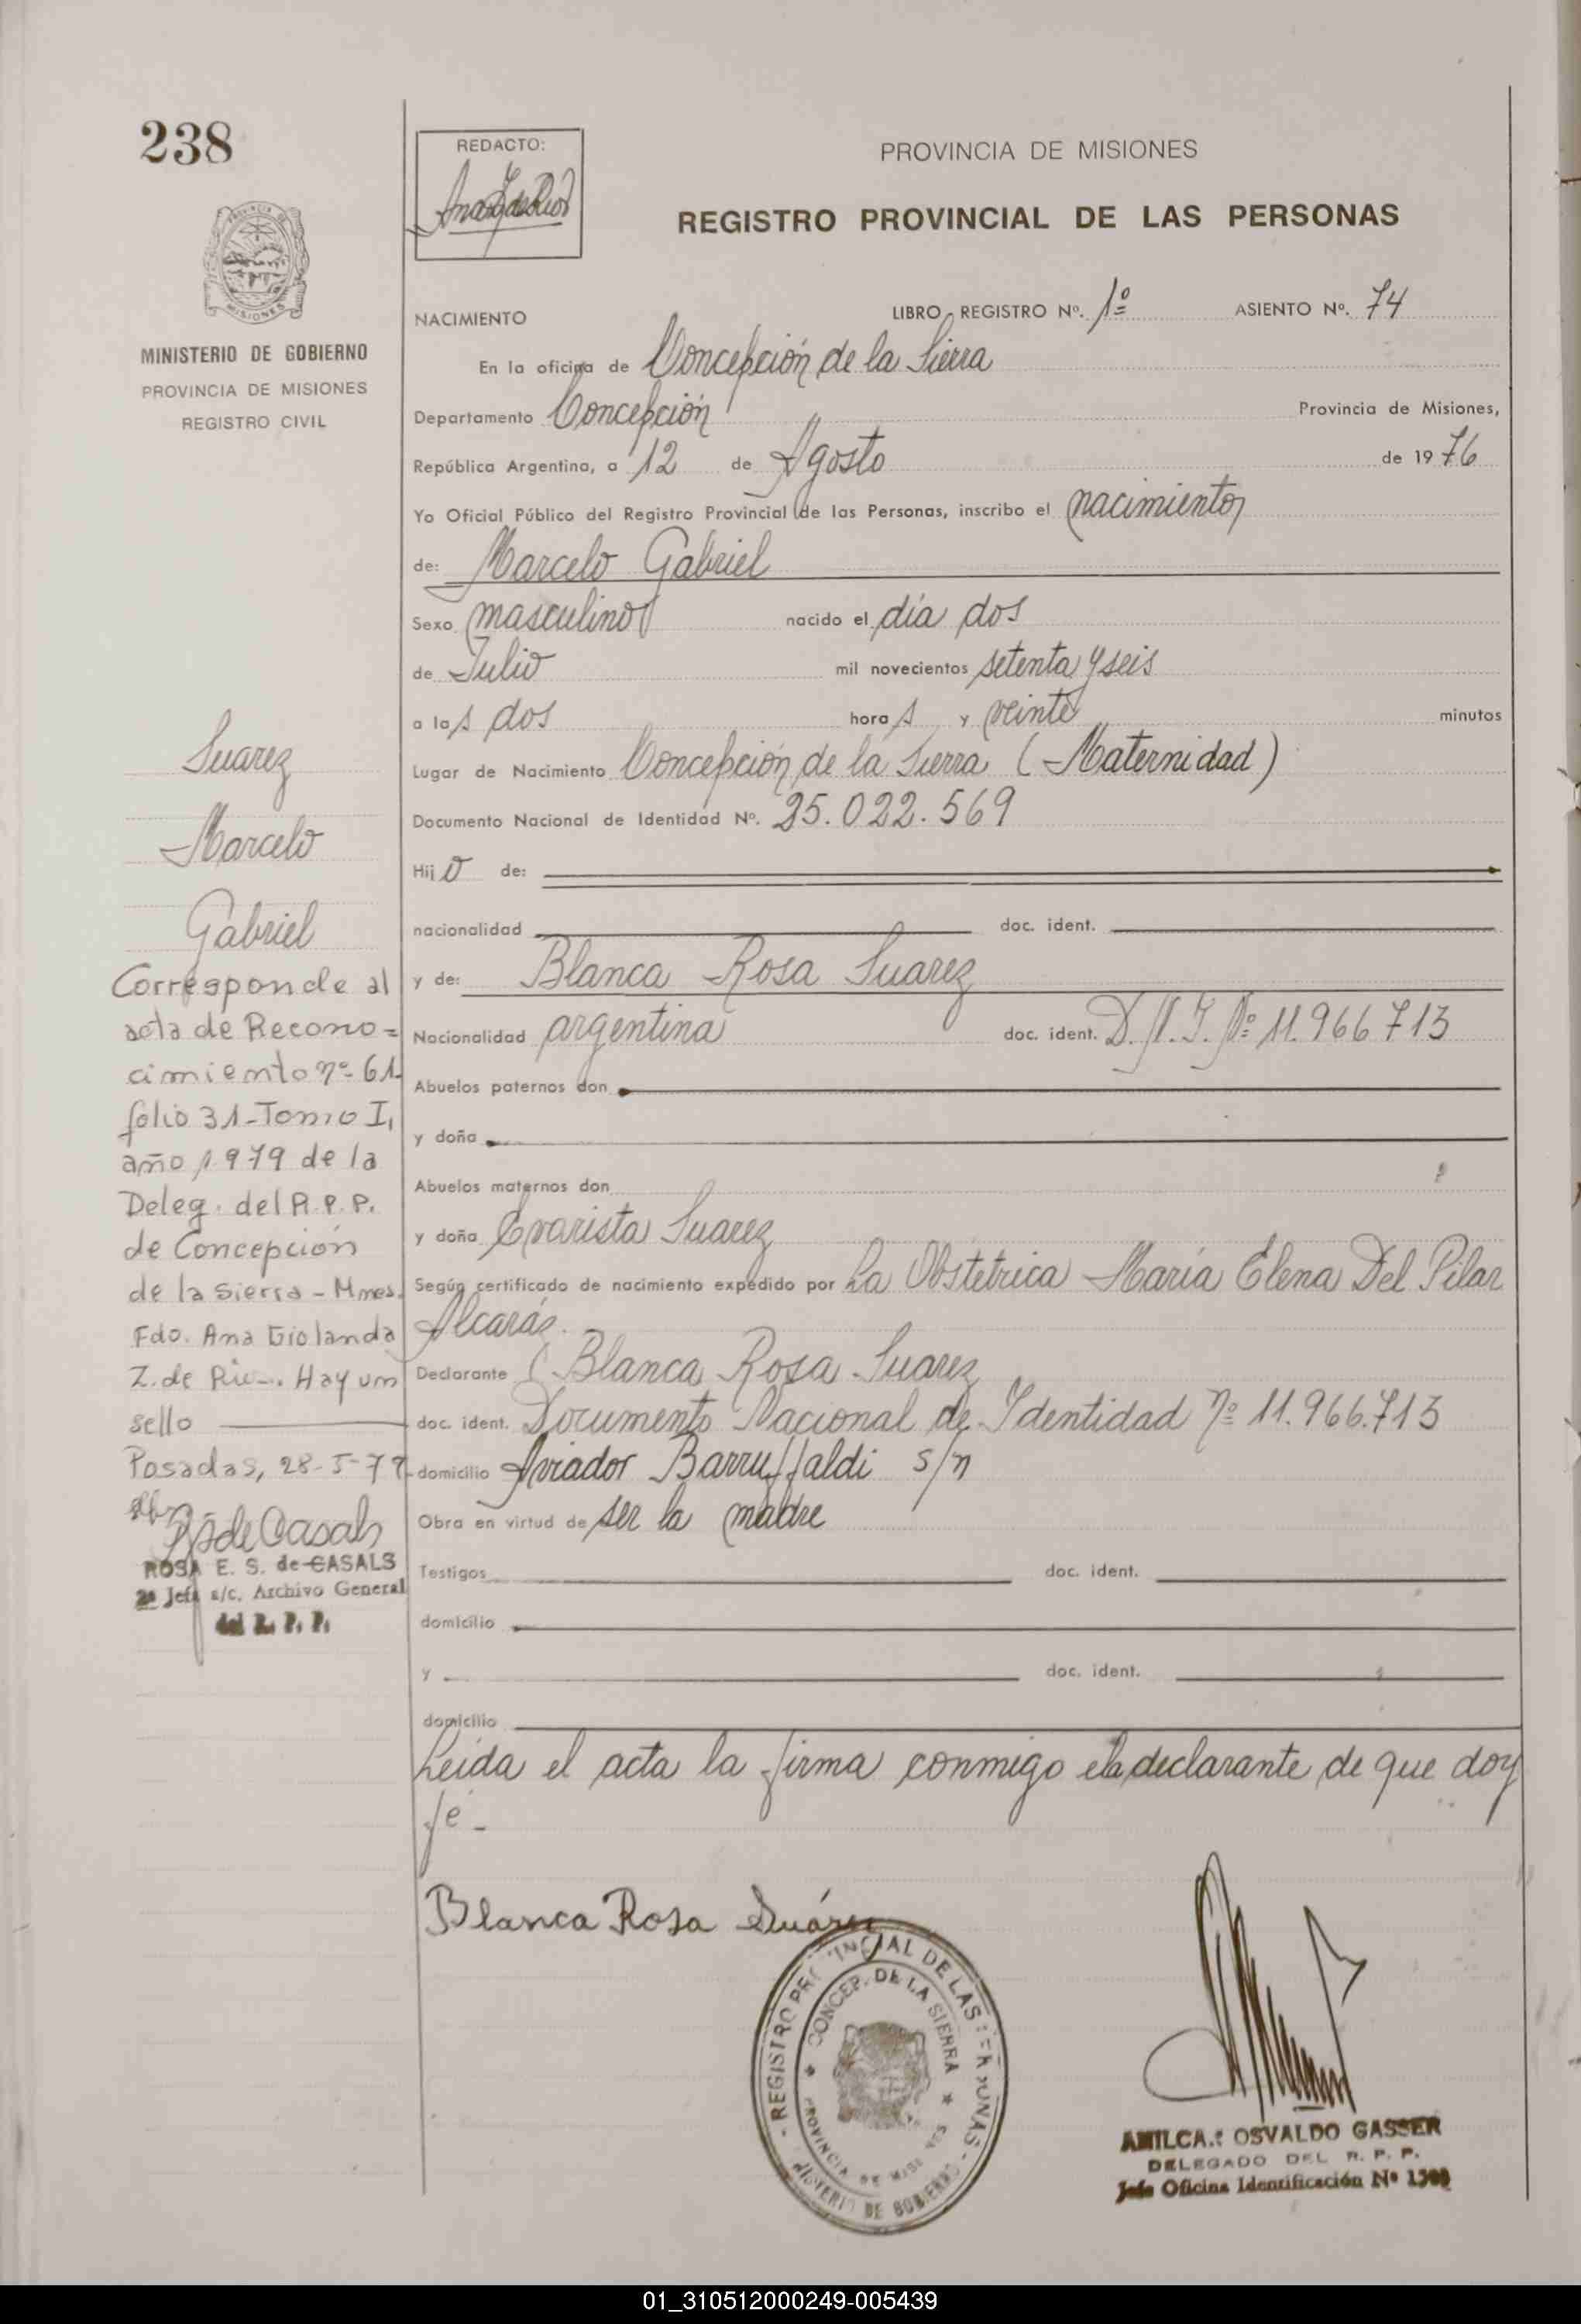 238
REDACTO:
PROVINCIA DE MISIONES
REGISTRO PROVINCIAL DE LAS PERSONAS
MISIONES
MINISTERIO DE GOBIERNO
PROVINCIA DE MISIONES
REGISTRO CIVIL
NACIMIENTO LIBRO REGISTRO Nº. 1º ASIENTO Nº. 74
En la oficina de Concepción de la Sierra
Departamento Concepción Provincia de Misiones,
República Argentina, a 12 de Agosto de 1976
Yo Oficial Público del Registro Provincial de las Personas, inscribo el nacimiento
de: Marcelo Gabriel
Sexo masculino nacido el día dos
de Julio mil novecientos setenta y seis
a las dos horas y veinte minutos
Lugar de Nacimiento Concepción de la Sierra (Maternidad)
Documento Nacional de Identidad Nº. 25.022.569
Hijo de:
nacionalidad doc. ident.
y de: Blanca Rosa Suarez
Nacionalidad argentina doc. ident. D.N.I. Nº 11.966.713
Abuelos paternos don
y doña
Abuelos maternos don
y doña Evarista Suarez
Según certificado de nacimiento expedido por La Obstetrica María Elena Del Pilar
Alcaráz.
Declarante Blanca Rosa Suarez
doc. ident. Documento Nacional de Identidad Nº 11.966.713
domicilio Aviador Barruffaldi s/n
Obra en virtud de ser la madre
Testigos doc. ident.
domicilio
y doc. ident.
domicilio
Leida el acta la firma conmigo la declarante de que doy
fé -
Suarez
Marcelo
Gabriel
Corresponde al
acta de Recono=
cimiento nº 61
folio 31-Tomo I,
año 1979 de la
Deleg. del R.P.P.
de Concepción
de la Sierra - Mnes.
Fdo. Ana Giolanda
Z. de . Hay un
sello
Posadas, 28-5-79
ROSA E. S. de CASALS
2ª Jefa s/c. Archivo General
del R. P. P.
Blanca Rosa Suárez
REGISTRO PROVINCIAL DE LAS PERSONAS
CONCEP. DE LA SIERRA
PROVINCIA DE MISIONES
MINISTERIO DE GOBIERNO
AMILCAR OSVALDO GASSER
DELEGADO DEL R. P. P.
Jefe Oficina Identificación Nº
01_310512000249-005439